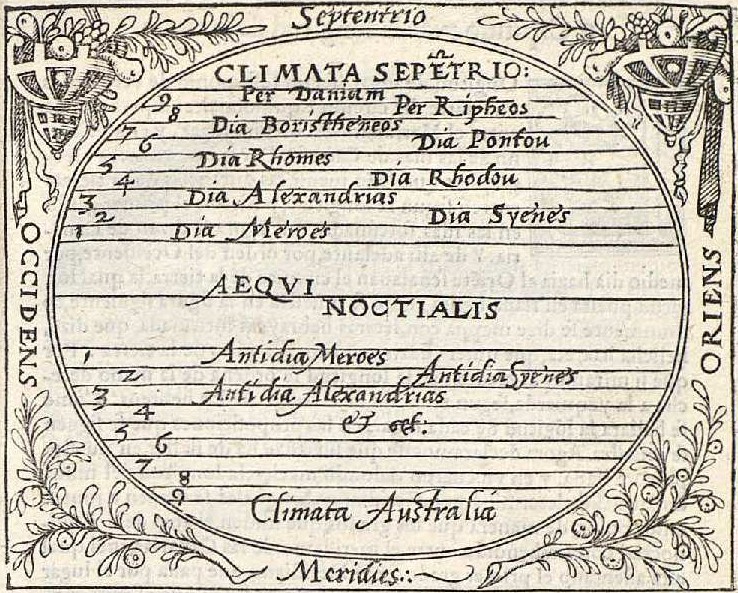 Septentrio
CLIMATA SEPĒTRIO:
9 Per Daniam
8 Per Ripheos
7 Dia Boristheneos
6 Dia Pontou
5 Dia Rhomes
4 Dia Rhodou
3 Dia Alexandrias
2 Dia Syenes
1 Dia Meroes
OCCIDENS
ORIENS
AEQVI
NOCTIALIS
1 Antidia Meroes
2 Antidia Syenes
3 Antidia Alexandrias
4
5
& cet:
6
7
8
9
Climata Australia
Meridies:.